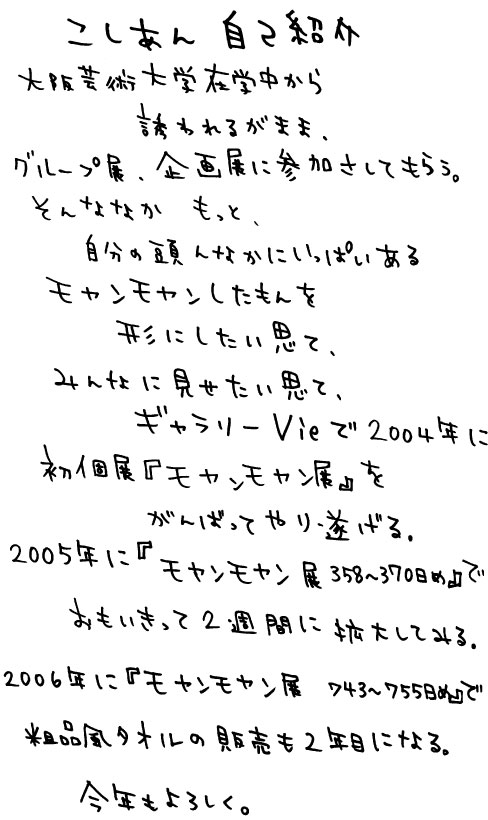 こしあん 自己紹介
大阪芸術大学在学中から
誘われるがまま、
グループ展、企画展に参加さしてもらう。
そんなななか もっと、
自分の頭んなかにいっぱいある
モヤンモヤンしたもんを
形にしたい思て、
みんなに見せたい思て、
ギャラリーVieで2004年に
初個展『モヤンモヤン展』を
がんばってやり遂げる。
2005年に『モヤンモヤン展 358~370日め』で
おもいきって2週間に拡大してみる。
2006年に『モヤンモヤン展 743~755日め』で
粗品風タオルの販売も2年目になる。
今年もよろしく。